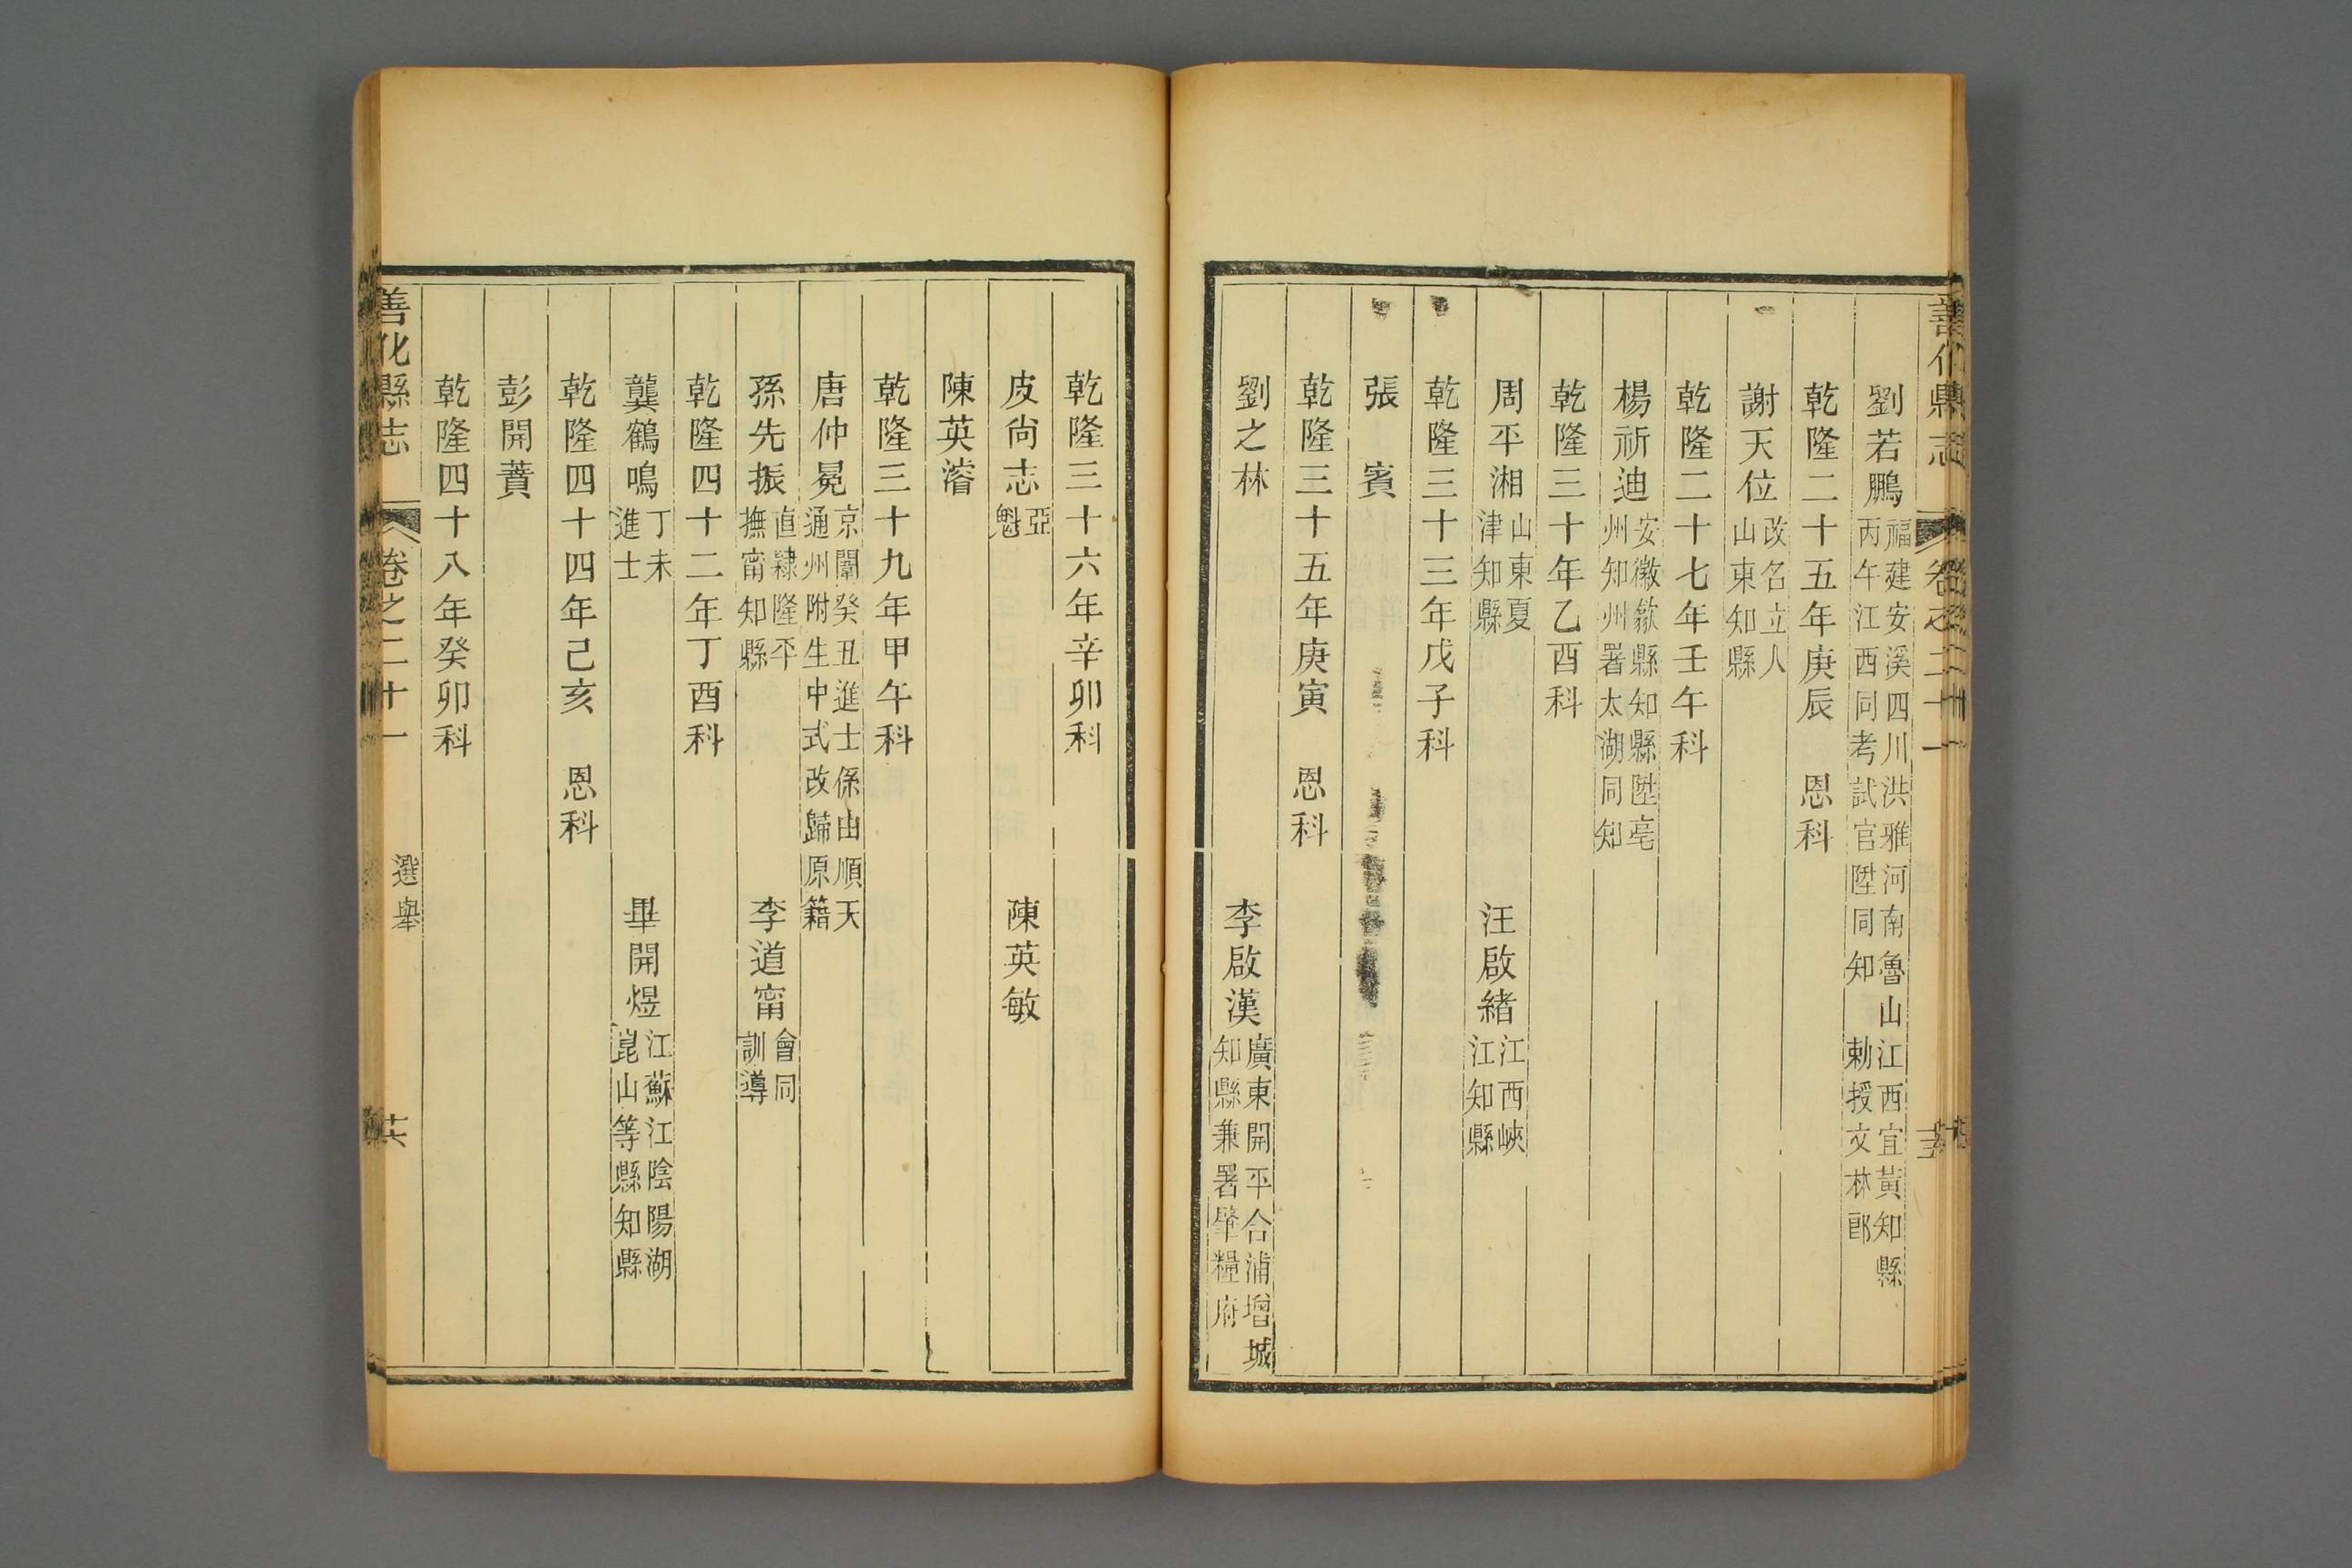 善化縣志 卷之二十一
劉若鵬 福建安溪四川洪雅河南魯山江西宜黃知縣
丙午江西同考試官陞同知 勅授文林郎
乾隆二十五年庚辰 恩科
謝天位 改名立人
山東知縣
乾隆二十七年壬午科
楊祈迪 安徽歙縣知縣陞亳
州知州署太湖同知
乾隆三十年乙酉科
周平湘 山東夏
津知縣
汪啟緒 江西峽
江知縣
乾隆三十三年戊子科
張 賓
乾隆三十五年庚寅 恩科
劉之林
李啟漢 廣東開平合浦增城
知縣兼署肇糧府
乾隆三十六年辛卯科
皮尚志 亞
魁
陳英敏
陳英濬
乾隆三十九年甲午科
唐仲冕 京闈癸丑進士係由順天
通州附生中式改歸原籍
孫先振 直隸隆平
撫甯知縣
李道甯 會同
訓導
乾隆四十二年丁酉科
龔鶴鳴 丁未
進士
畢開煜 江蘇江陰陽湖
崑山等縣知縣
乾隆四十四年己亥 恩科
彭開蕡
乾隆四十八年癸卯科
善化縣志 卷之二十一 選舉 十六